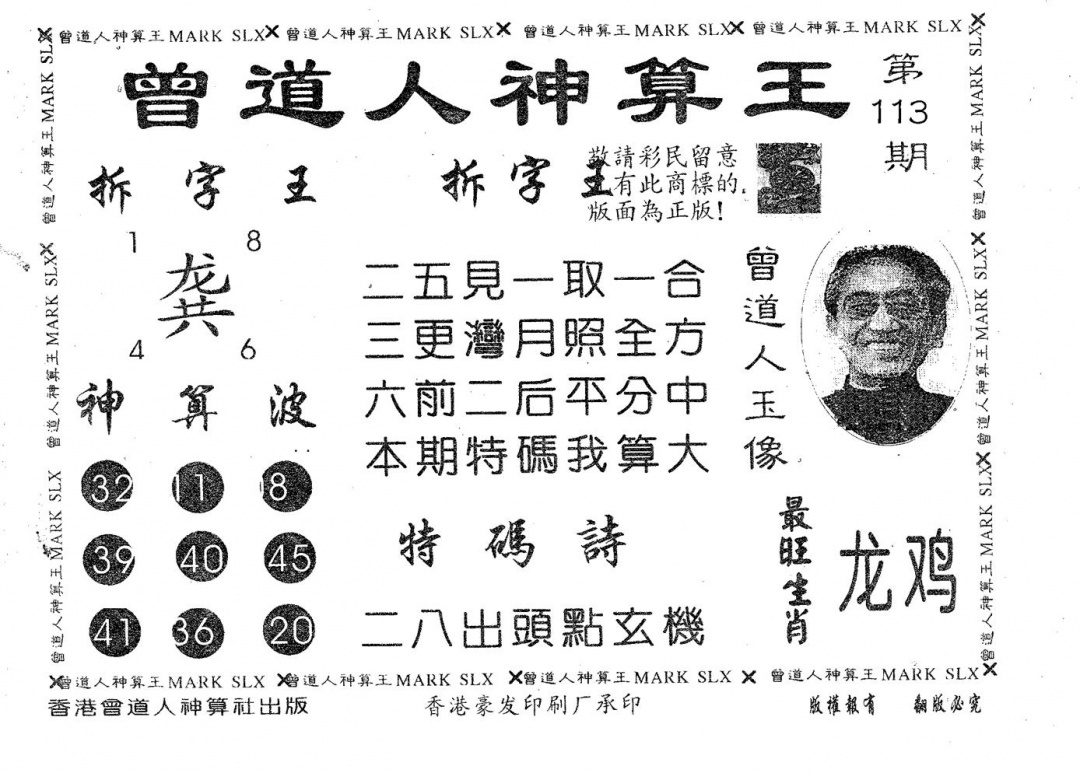 曾道人神算王MARK SLX 曾道人神算王MARK SLX 曾道人神算王MARK SLX 曾道人神算王MARK SLX
曾道人神算王
第
113
期
拆字王
拆字王
敬請彩民留意
有此商標的
版面為正版!
1 8
龚
4 6
二五見一取一合
三更灣月照全方
六前二后平分中
本期特碼我算大
曾道人玉像
神算波
32 11 08
39 40 45
41 36 20
特碼詩
二八出頭點玄機
最旺生肖
龙鸡
曾道人神算王MARK SLX 曾道人神算王MARK SLX 曾道人神算王MARK SLX
曾道人神算王MARK SLX 曾道人神算王MARK SLX 曾道人神算王MARK SLX
曾道人神算王MARK SLX 曾道人神算王MARK SLX 曾道人神算王MARK SLX 曾道人神算王MARK SLX
香港曾道人神算社出版
香港豪发印刷厂承印
版權報有 翻版必究